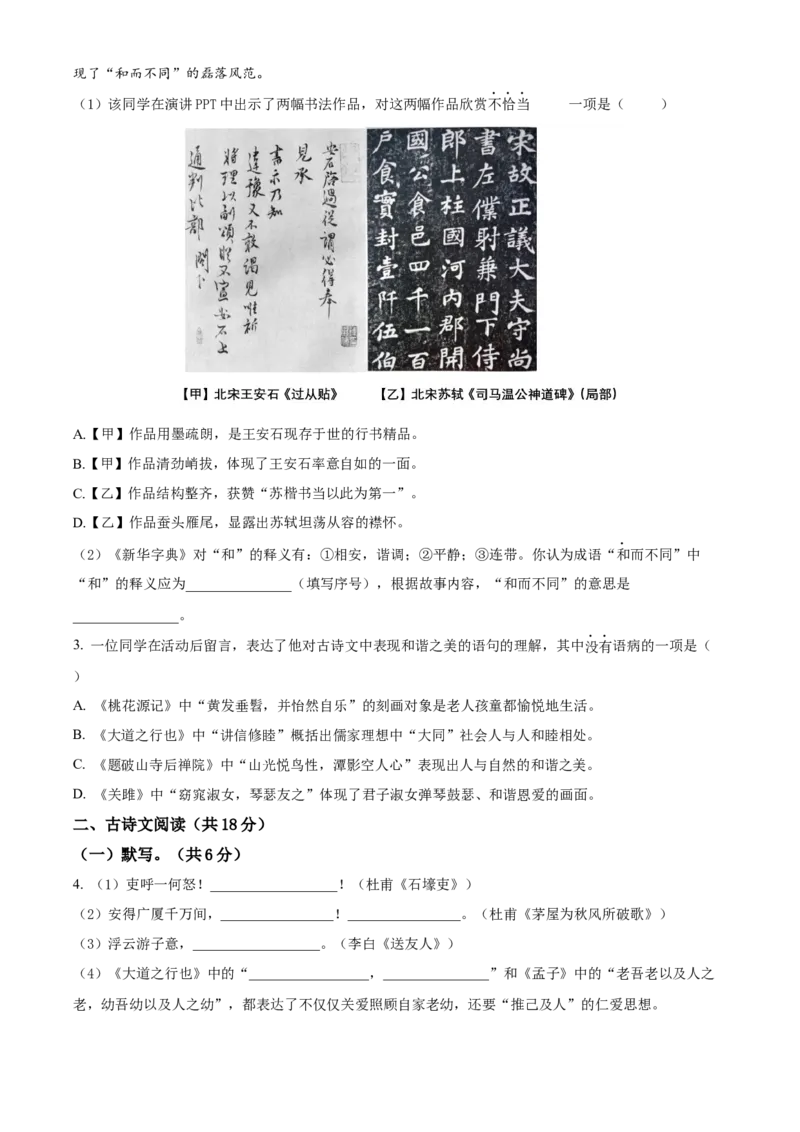 现了“和而不同”的磊落风范。
（1）该同学在演讲PPT中出示了两幅书法作品，对这两幅作品欣赏不恰当 一项是（ ）
安石启過從謂必得奉
見承
書示乃知
違豫又不敢謁見唯祈
將理以副頌願又宣安石上
通判比部 閤下
宋故正議大夫守尚
書左僕射兼門下侍
郎上柱國河內郡開
國公食邑四千一百
戶食實封壹阡伍伯
【甲】北宋王安石《过从贴》 【乙】北宋苏轼《司马温公神道碑》（局部）
A.【甲】作品用墨疏朗，是王安石现存于世的行书精品。
B.【甲】作品清劲峭拔，体现了王安石率意自如的一面。
C.【乙】作品结构整齐，获赞“苏楷书当以此为第一”。
D.【乙】作品蚕头雁尾，显露出苏轼坦荡从容的襟怀。
（2）《新华字典》对“和”的释义有：①相安，谐调；②平静；③连带。你认为成语“和而不同”中
“和”的释义应为_______________（填写序号），根据故事内容，“和而不同”的意思是
_______________。
3. 一位同学在活动后留言，表达了他对古诗文中表现和谐之美的语句的理解，其中没有语病的一项是（
）
A. 《桃花源记》中“黄发垂髫，并怡然自乐”的刻画对象是老人孩童都愉悦地生活。
B. 《大道之行也》中“讲信修睦”概括出儒家理想中“大同”社会人与人和睦相处。
C. 《题破山寺后禅院》中“山光悦鸟性，潭影空人心”表现出人与自然的和谐之美。
D. 《关雎》中“窈窕淑女，琴瑟友之”体现了君子淑女弹琴鼓瑟、和谐恩爱的画面。
二、古诗文阅读（共18分）
（一）默写。（共6分）
4. （1）吏呼一何怒！__________________！（杜甫《石壕吏》）
（2）安得广厦千万间，________________！________________。（杜甫《茅屋为秋风所破歌》）
（3）浮云游子意，__________________。（李白《送友人》）
（4）《大道之行也》中的“_________________，_______________”和《孟子》中的“老吾老以及人之
老，幼吾幼以及人之幼”，都表达了不仅仅关爱照顾自家老幼，还要“推己及人”的仁爱思想。